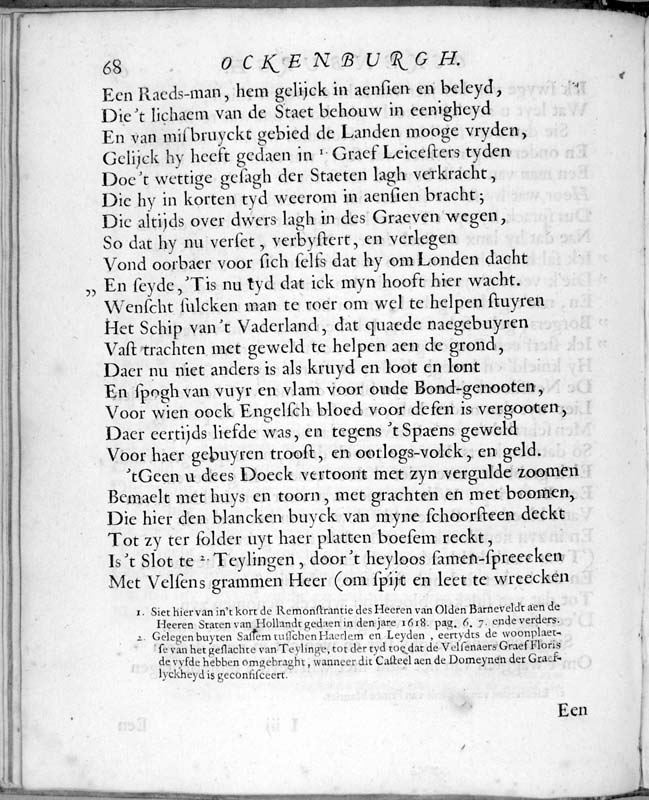 68 OCKENBURGH.
Een Raeds-man, hem gelijck in aensien en beleyd,
Die 't lichaem van de Staet behouw in eenigheyd
En van miſbruyckt gebied de Landen mooge vryden,
Gelijck hy heeft gedaen in 1. Graef Leiceſters tyden
Doe 't wettige geſagh der Staeten lagh verkracht,
Die hy in korten tyd weerom in aenſien bracht;
Die altijds over dwers lagh in des Graeven wegen,
So dat hy nu verſet, verbyſtert, en verlegen
Vond oorbaer voor ſich ſelfs dat hy om Londen dacht
„ En ſeyde, 'Tis nu tyd dat ick myn hooft hier wacht.
Wenſcht ſulcken man te roer om wel te helpen ſtuyren
Het Schip van 't Vaderland, dat quaede naegebuyren
Vaſt trachten met geweld te helpen aen de grond,
Daer nu niet anders is als kruyd en loot en lont
En ſpogh van vuyr en vlam voor oude Bond-genooten,
Voor wien oock Engelſch bloed voor deſen is vergooten,
Daer eertijds liefde was, en tegens 't Spaens geweld
Voor haer gebuyren trooſt, en oorlogs-volck, en geld.
'tGeen u dees Doeck vertoont met zyn vergulde zoomen
Bemaelt met huys en toorn, met grachten en met boomen,
Die hier den blancken buyck van myne ſchoorſteen deckt
Tot zy ter ſolder uyt haer platten boeſem reckt,
Is 't Slot te 2. Teylingen, door 't heyloos ſamen-ſpreecken
Met Velſens grammen Heer (om ſpijt en leet te wreecken
1. Siet hier van in't kort de Remonſtrantie des Heeren van Olden Barneveldt aen de
Heeren Staten van Hollandt gedaen in den jare 1618. pag. 6. 7. ende verders.
2. Gelegen buyten Saſſem tuſſchen Haerlem en Leyden, eertydts de woonplaet-
ſe van het geſlachte van Teylinge, tot der tyd toe dat de Velſenaers Graef Floris
de vyfde hebben omgebraght, wanneer dit Caſteel aen de Domeynen der Graef-
lyckheyd is geconfiſceert.
Een